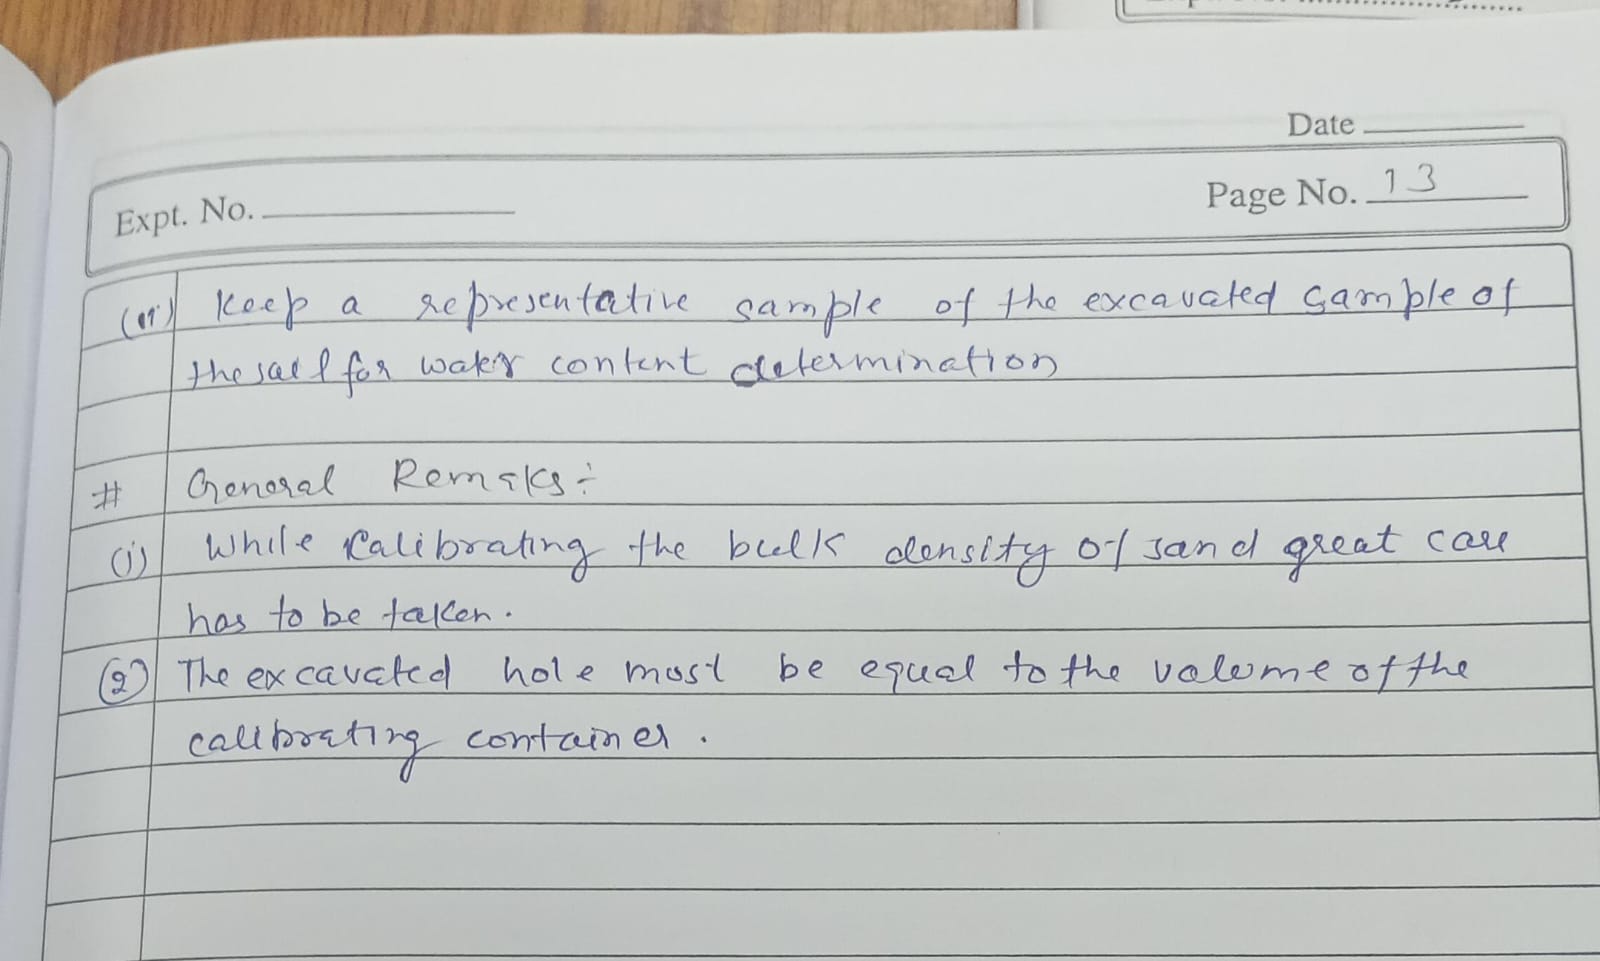 Date
Expt. No.
Page No. 13
(vi) Keep a representative sample of the excavated sample of
the soil for water content determination
# General Remaks :-
(i) While Calibrating the bulk density of sand great care
has to be taken.
(2) The excavated hole must be equal to the volume of the
calibrating container.